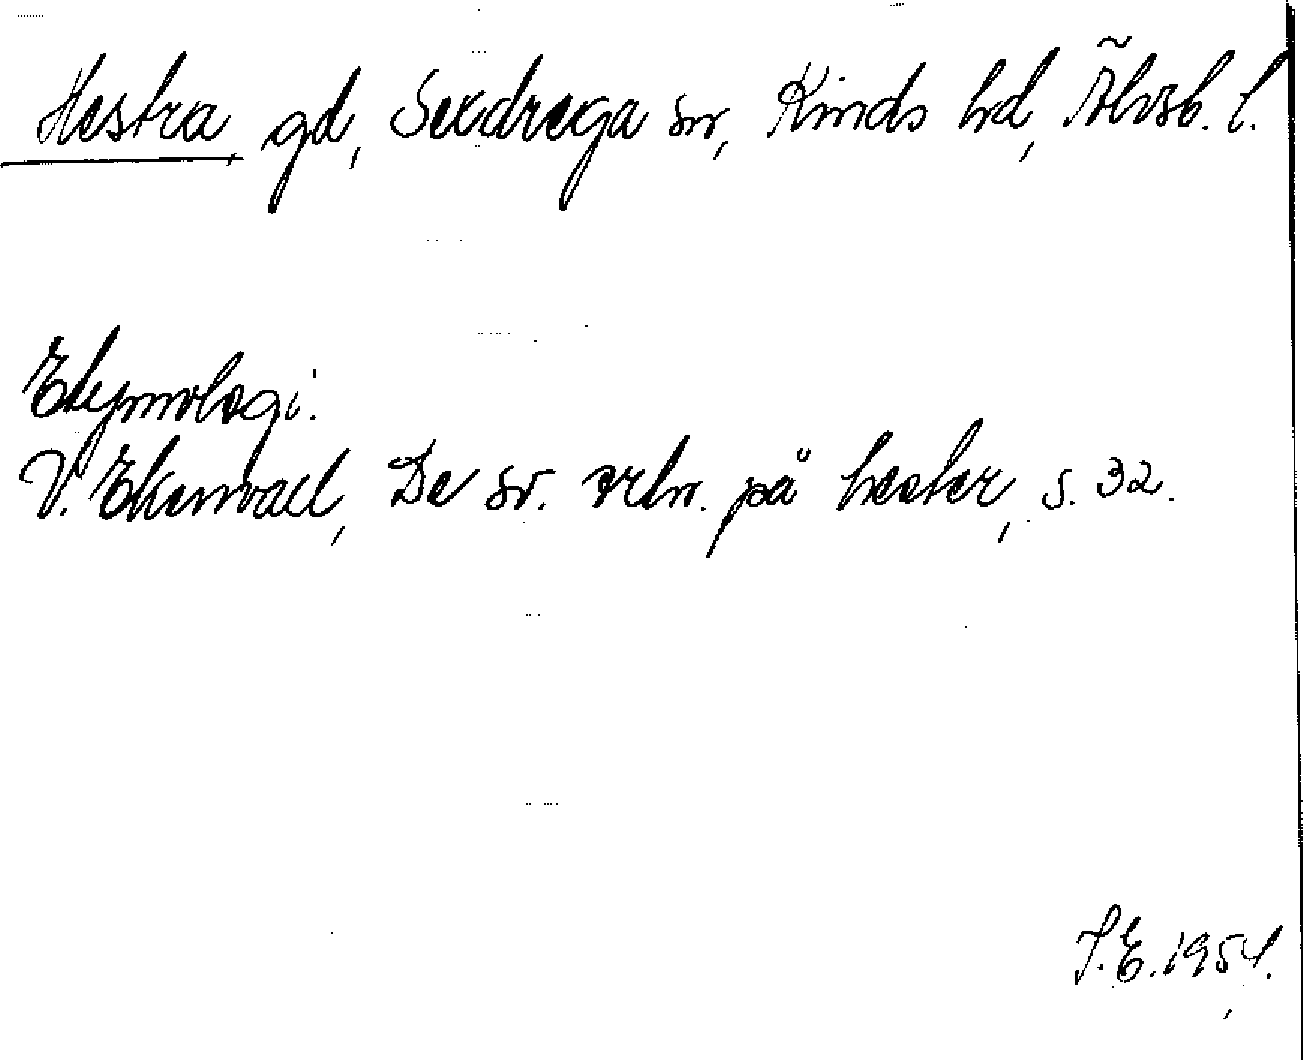 Hestra, gd, Sexdrega sn, Kinds hd, Älvsb. l.
Etymologi:
V. Ekenvall, De sv. ortn. på hester, s. 32.
S.E. 1954.